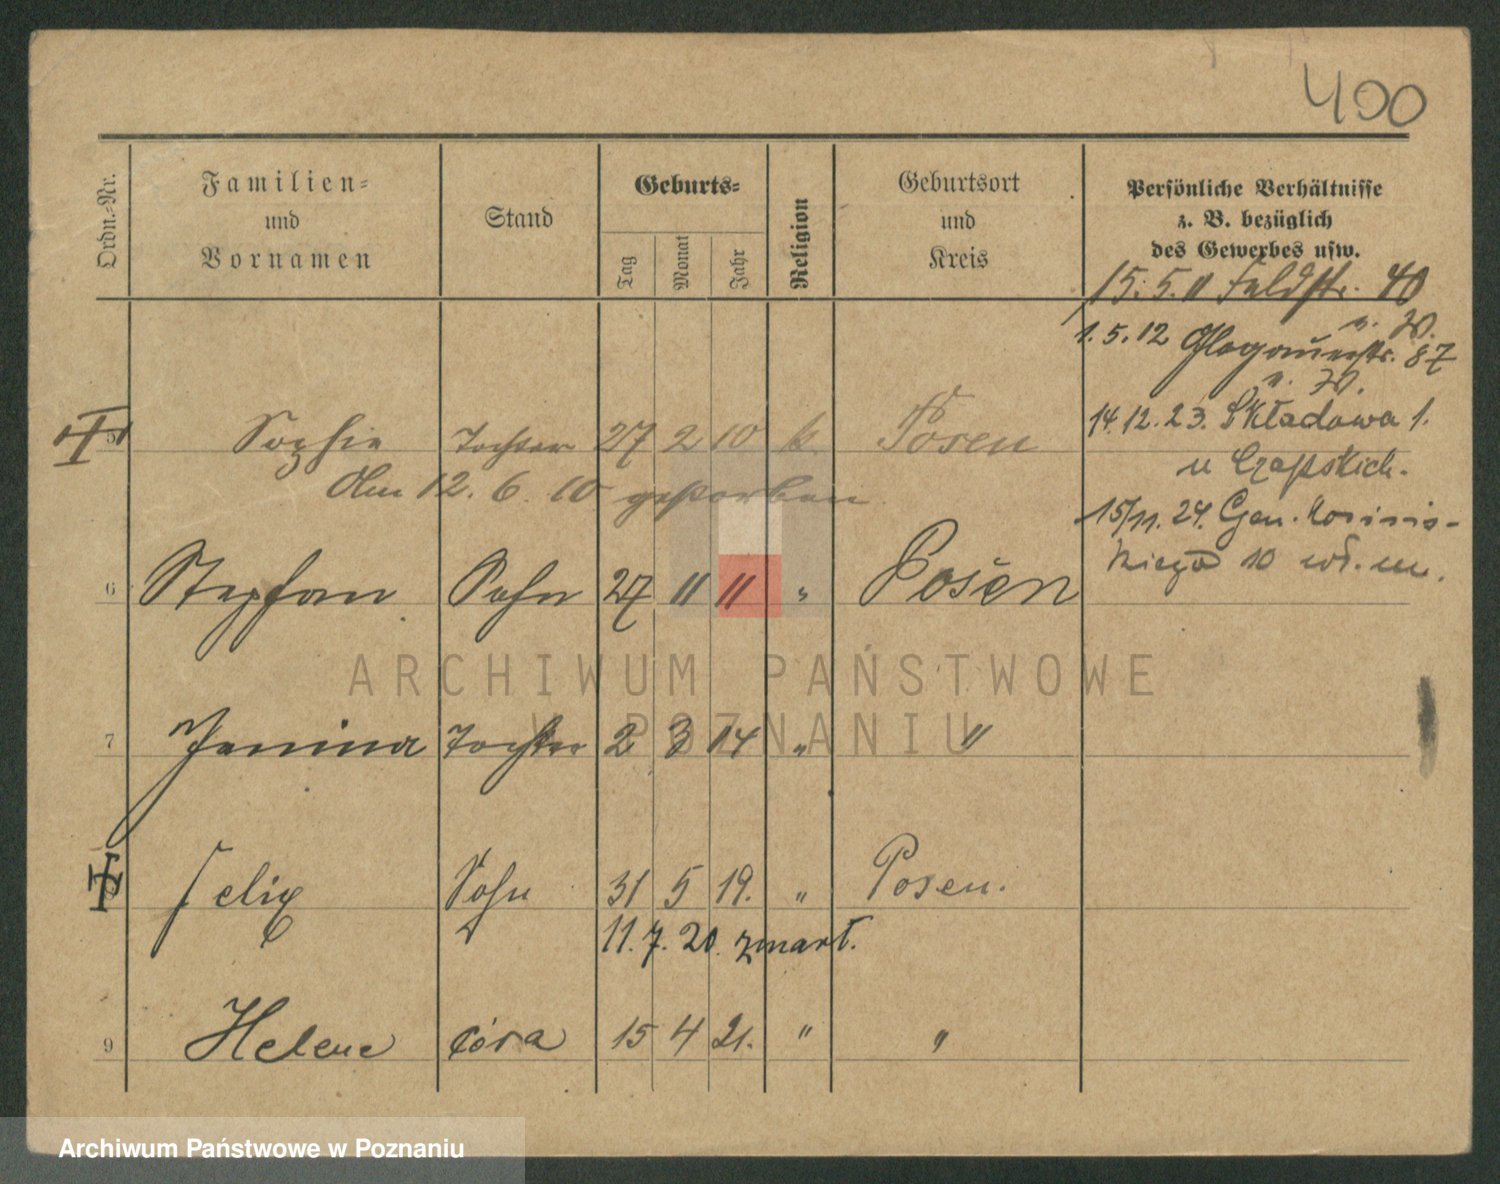 400
Ordn.-Nr.
Familien-
und
Vornamen
Stand
Geburts-
Tag
Monat
Jahr
Religion
Geburtsort
und
Kreis
Persönliche Verhältnisse
z. B. bezüglich
des Gewerbes usw.
15. 5. 11 Feldstr. 40
1. 5. 12 Glogauerstr. 87
14. 12. 23. Składowa 1.
u Czapskich.
15/11. 24. Gen. Kosińs-
kiego 10 wł. m.
5 Sophie Tochter 27 2 10 k. Posen
Am 12. 6. 10 gestorben
6 Stephan Sohn 27 11 11 " Posen
ARCHIWUM PAŃSTWOWE
W POZNANIU
7 Janina Tochter 2 3 14 " "
Felix Sohn 31 5 19. " Posen.
11. 7. 20. zmarł.
9 Helene córa 15 4 21. " "
Archiwum Państwowe w Poznaniu